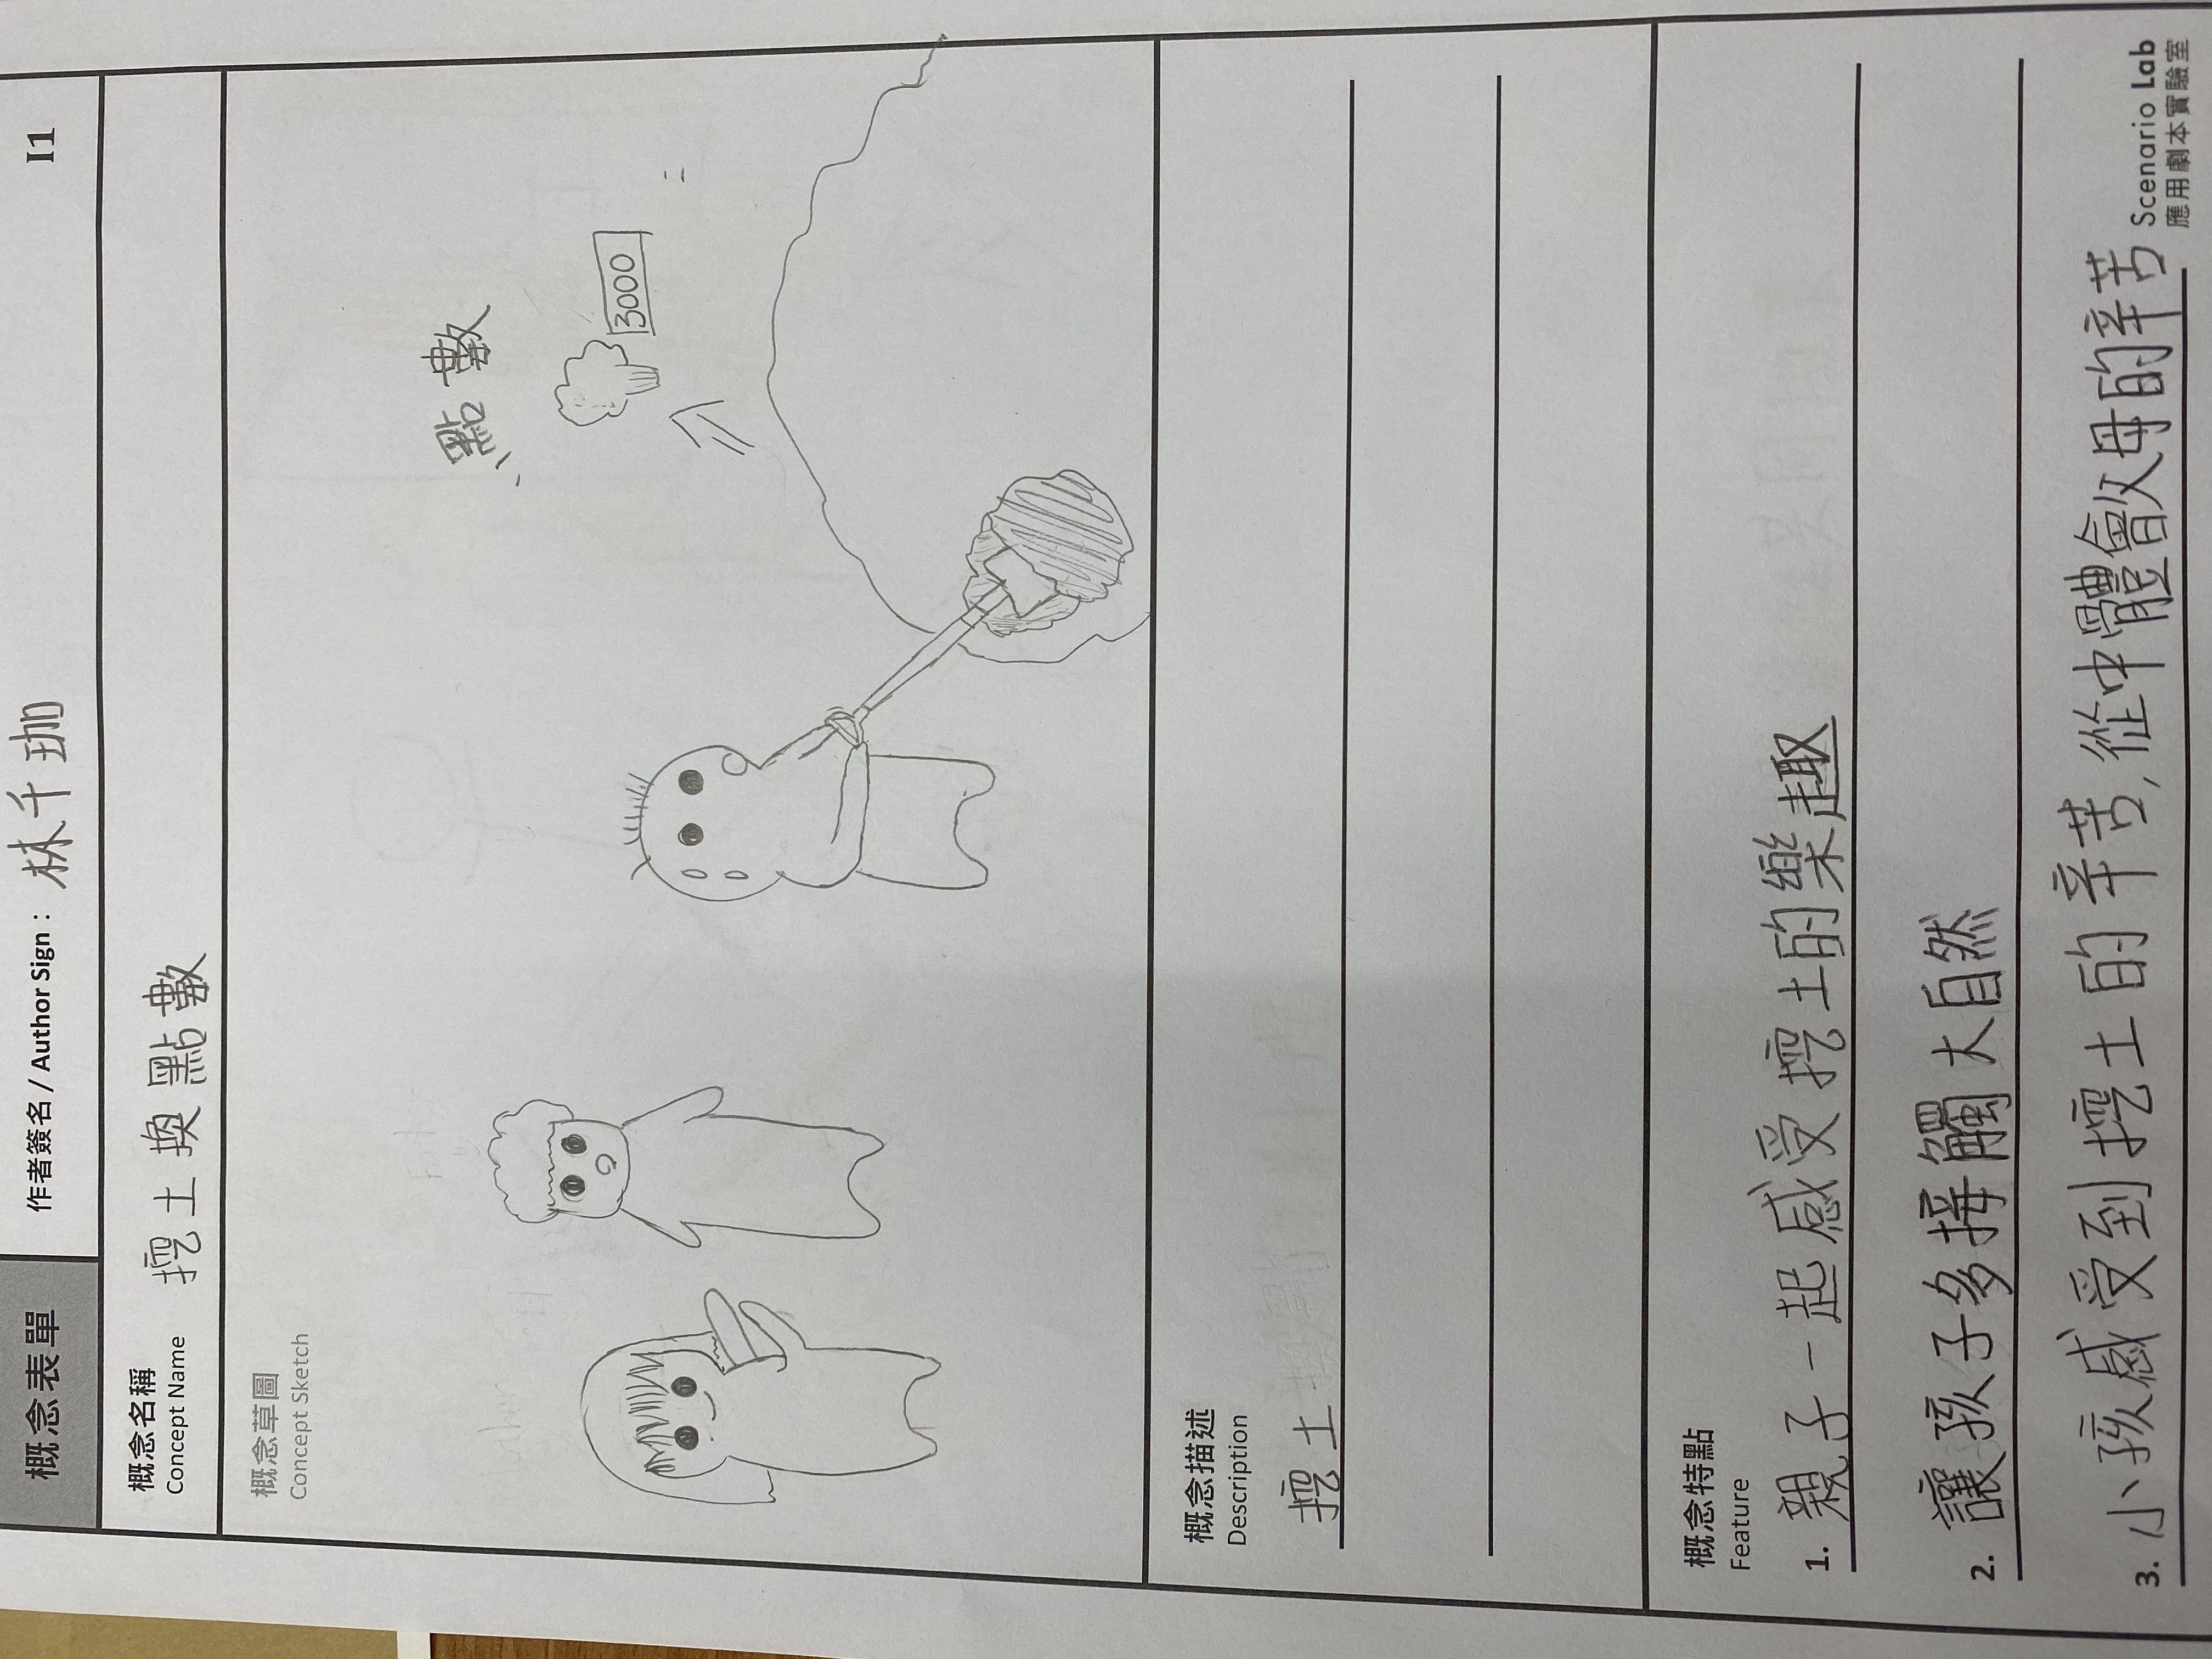 概念表單
作者簽名 / Author Sign：林千珈
I1
概念名稱
Concept Name
挖土換點數
概念草圖
Concept Sketch
Father
Mother
點數
3000
概念描述
Description
挖土
概念特點
Feature
1. 親子一起感受挖土的樂趣
2. 讓孩子多接觸大自然
3. 小孩感受到挖土的辛苦,從中體會父母的辛苦
Scenario Lab
應用劇本實驗室